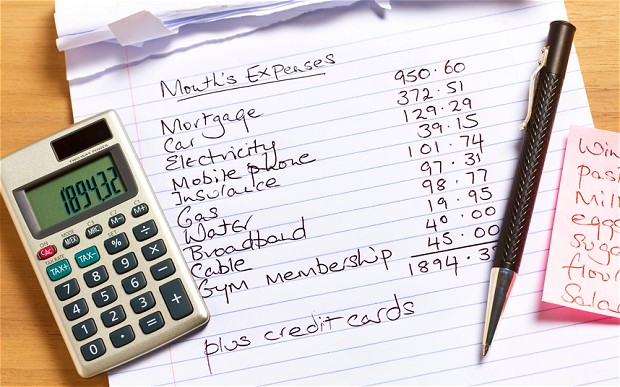 Month's Expenses
Mortgage 950.60
Car 372.51
Electricity 129.29
Mobile phone 39.15
Insurance 101.74
Gas 97.31
Water 98.77
Broadband 19.95
Cable 40.00
Gym Membership 45.00
1894.3
plus credit cards
TWO WAY POWER
1894.32
ON
CAC M/EX MRC M- M+
TAX+ TAX- % ÷
7 8 9 ×
4 5 6 -
1 2 3 +
0 . =
Win
past
Mil
eggs
suga
flou
Sala